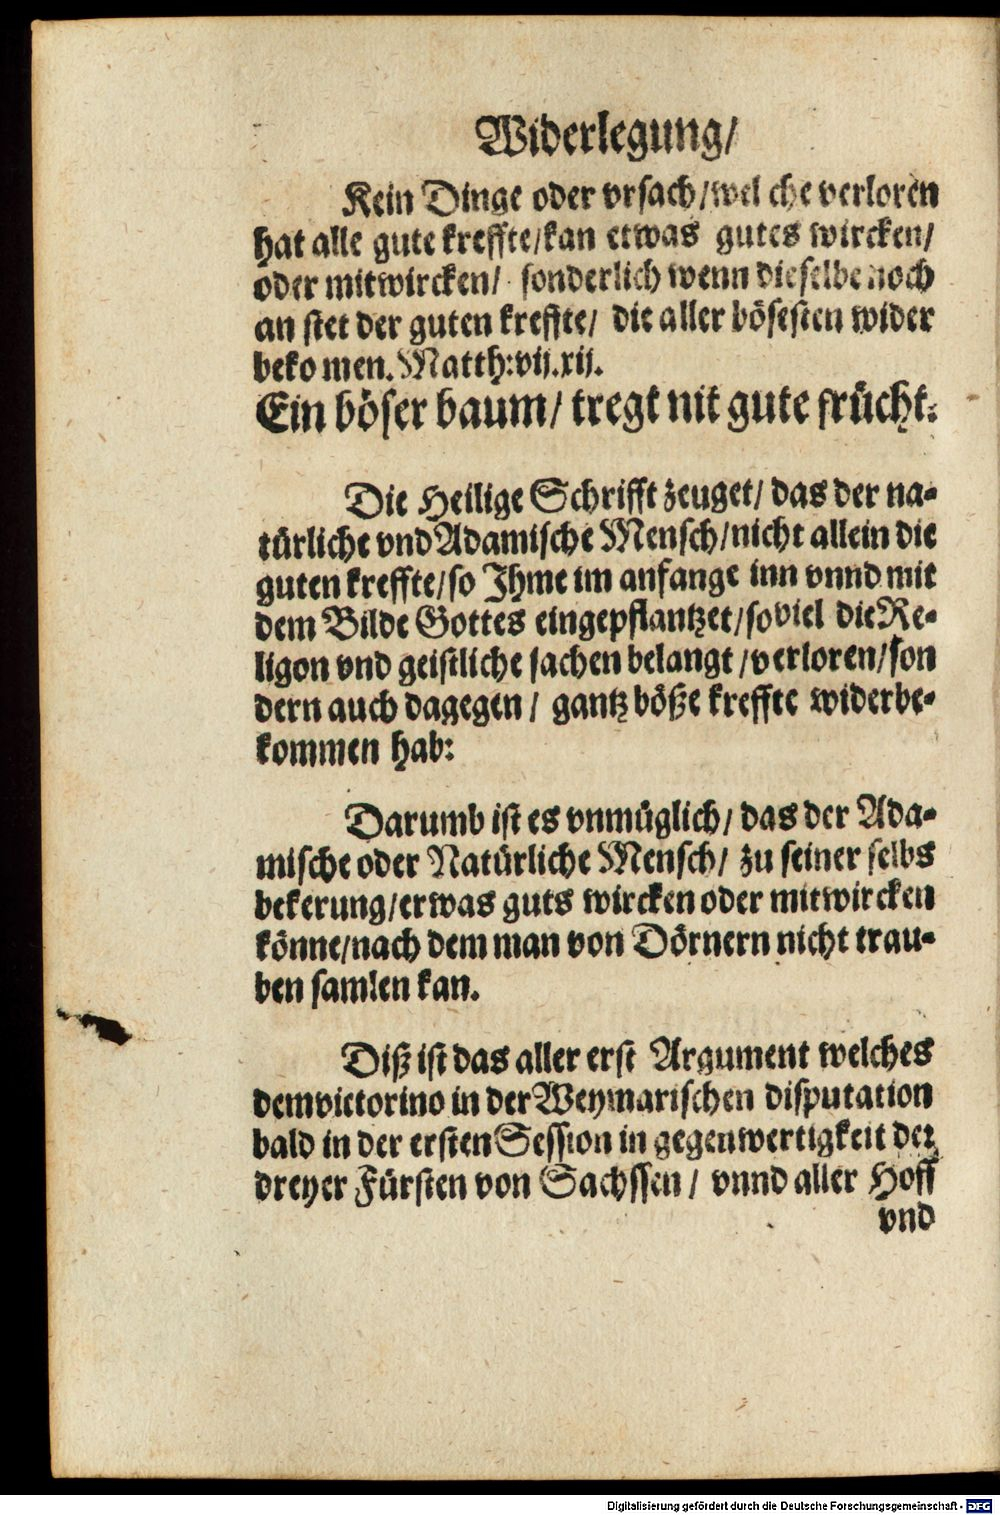 Widerlegung/
Kein Dinge oder vrsach/wel che verloren
hat alle gute kreffte/kan etwas gutes wircken/
oder mitwircken/ sonderlich wenn dieselbe noch
an stet der guten kreffte/ die aller bösesten wider
beko men. Matth:vij.xij.
Ein böser baum/ tregt nit gute frücht.
Die Heilige Schrifft zeuget/ das der na-
türliche vnd Adamische Mensch/nicht allein die
guten kreffte/so Ihme im anfange inn vnnd mit
dem Bilde Gottes eingepflantzet/soviel die Re-
ligon vnd geistliche sachen belangt/verloren/son
dern auch dagegen/ gantz böße kreffte widerbe-
kommen hab:
Darumb ist es vnmüglich/ das der Ada-
mische oder Natürliche Mensch/ zu seiner selbs
bekerung/erwas guts wircken oder mitwircken
könne/nach dem man von Dörnern nicht trau-
ben samlen kan.
Diß ist das aller erst Argument welches
dem victorino in der Weymarischen disputation
bald in der ersten Session in gegenwertigkeit der
dreyer Fürsten von Sachssen/ vnnd aller Hoff
vnd
Digitalisierung gefördert durch die Deutsche Forschungsgemeinschaft - DFG